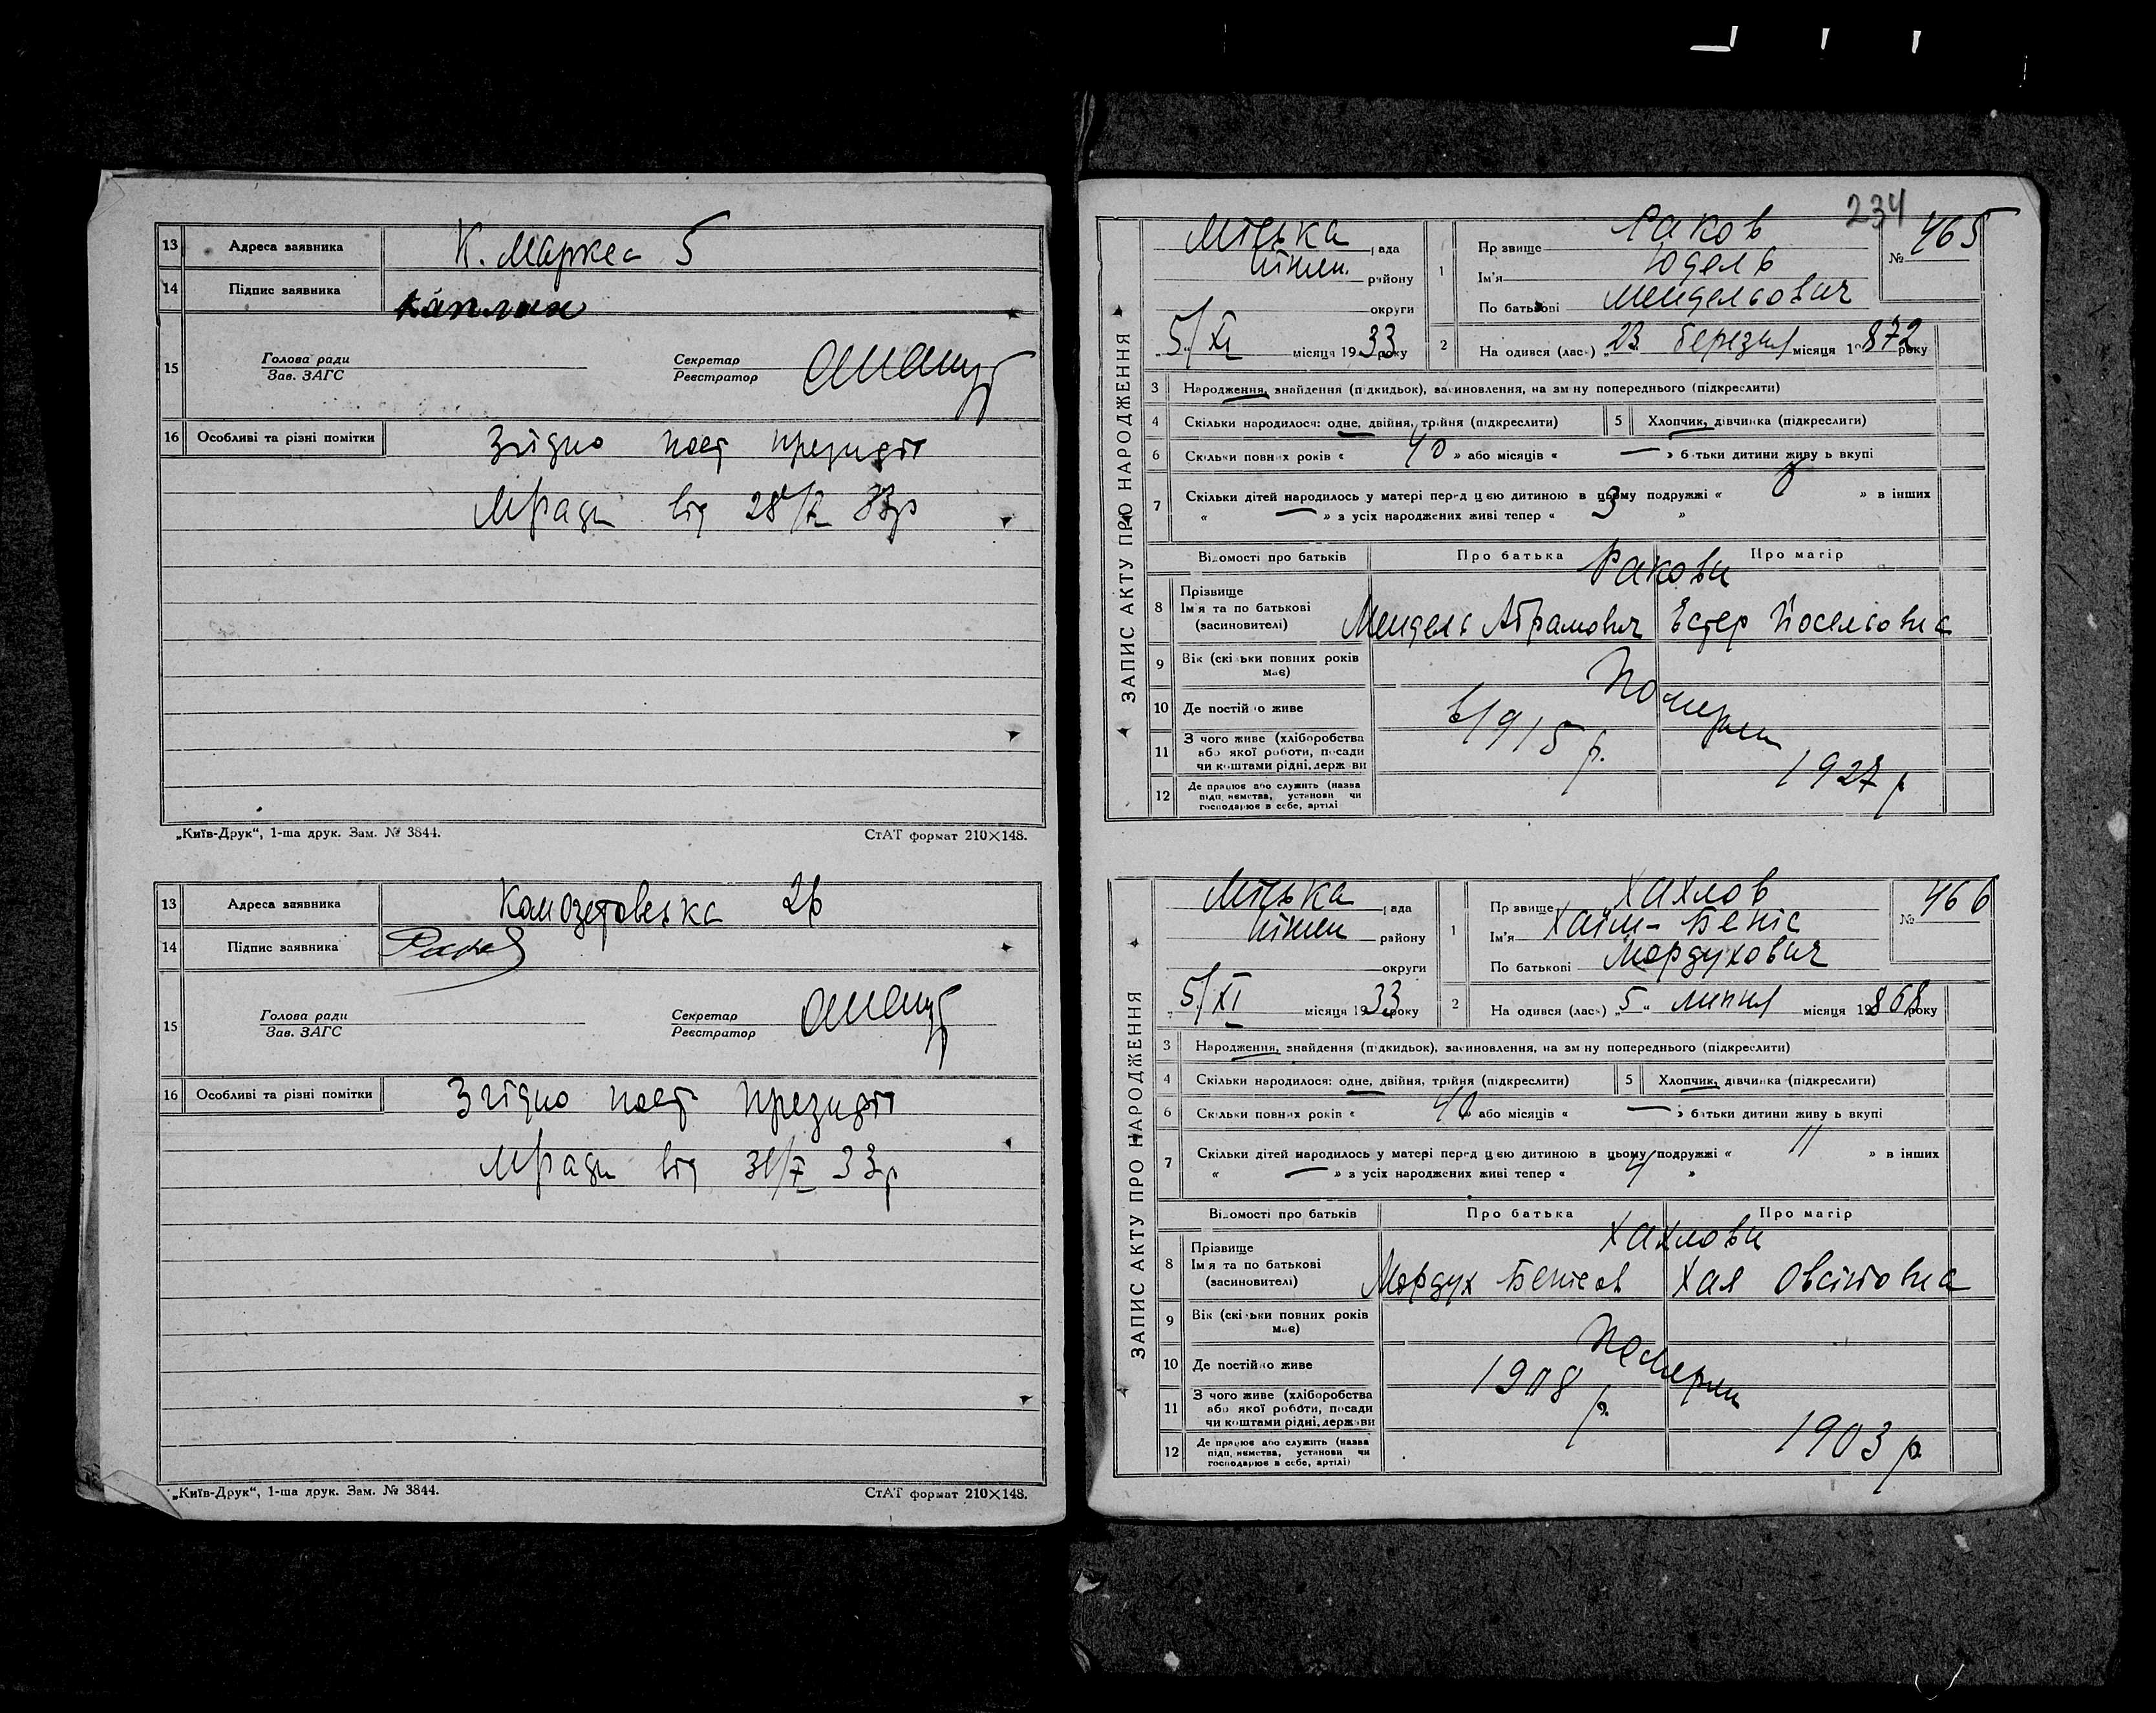 13 Адреса заявника К. Маркса 5
14 Підпис заявника Каплан
15 Голова ради Секретар
Зав. ЗАГС Реєстратор
16 Особливі та різні помітки Згідно пост президії
Мради від 28/X 33р
„Київ-Друк“, 1-ша друк. Зам. № 3844. СтАТ формат 210×148.
13 Адреса заявника 26
14 Підпис заявника Раков
15 Голова ради Секретар
Зав. ЗАГС Реєстратор
16 Особливі та різні помітки Згідно пост президії
Мради від 31/X 33р
„Київ-Друк“, 1-ша друк. Зам. № 3844. СтАТ формат 210×148.
234
ЗАПИС АКТУ ПРО НАРОДЖЕННЯ
Міська рада
Ніжен. району
округи
„5“/XI місяця 1933 року
1 Прізвище Раков
Ім'я Юдель
По батькові Мендельович
№ 465
2 Народився (лась) „23 березня місяця 1872 року
3 Народження, знайдення (підкидьок), засиновлення, на зміну попереднього (підкреслити)
4 Скільки народилося: одне, двійня, трійня (підкреслити) 5 Хлопчик, дівчинка (підкреслити)
6 Скільки повних років « 40 » або місяців « — » батьки дитини живуть вкупі
7 Скільки дітей народилось у матері перед цією дитиною в цьому подружжі « 8 » в інших
« — » з усіх народжених живі тепер « 3 »
Відомості про батьків Про батька Про матір
Ракови
8 Прізвище
Ім'я та по батькові Мендель Абрамович Естер Йосельовна
(засиновителі)
9 Вік (скільки повних років має)
Померли
10 Де постійно живе
в 1915 р.
11 З чого живе (хліборобства
або якої роботи, посади
чи коштами рідні, держави
1927 р
12 Де працює або служить (назва
підприємства, установи чи
господарює в себе, артілі
ЗАПИС АКТУ ПРО НАРОДЖЕННЯ
Міська рада
Ніжен району
округи
„5“/XI місяця 1933 року
1 Прізвище Хахлов
Ім'я Хаїм-Беніс
По батькові Мордухович
№ 466
2 Народився (лась) „5“ липня місяця 1868 року
3 Народження, знайдення (підкидьок), засиновлення, на зміну попереднього (підкреслити)
4 Скільки народилося: одне, двійня, трійня (підкреслити) 5 Хлопчик, дівчинка (підкреслити)
6 Скільки повних років « 40 » або місяців « — » батьки дитини живуть вкупі
7 Скільки дітей народилось у матері перед цією дитиною в цьому подружжі « 11 » в інших
« — » з усіх народжених живі тепер « 4 »
Відомості про батьків Про батька Про матір
Хахлови
8 Прізвище
Ім'я та по батькові Мордух Хая
(засиновителі)
9 Вік (скільки повних років має)
Померли
10 Де постійно живе
1908 р.
11 З чого живе (хліборобства
або якої роботи, посади
чи коштами рідні, держави
1903 р
12 Де працює або служить (назва
підприємства, установи чи
господарює в себе, артілі)